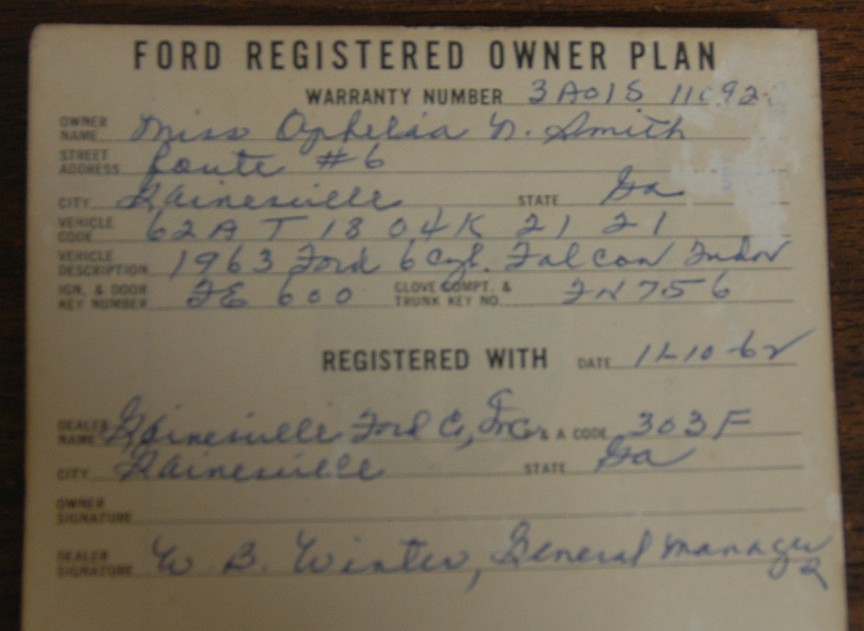 FORD REGISTERED OWNER PLAN
WARRANTY NUMBER 3A01S
OWNER NAME Miss Ophelia N. Smith
STREET ADDRESS Route #6
CITY Gainesville STATE Ga
VEHICLE CODE 62A T 18 04K 21 21
VEHICLE DESCRIPTION 1963 Ford 6 Cyl. Falcon Tudor
IGN. & DOOR KEY NUMBER FE 600 GLOVE COMPT. & TRUNK KEY NO. FN756
REGISTERED WITH DATE 11-10-62
DEALER NAME Gainesville Ford Co, Inc. & A CODE 303F
CITY Gainesville STATE Ga
OWNER SIGNATURE
DEALER SIGNATURE W. B. Winter, General Manager